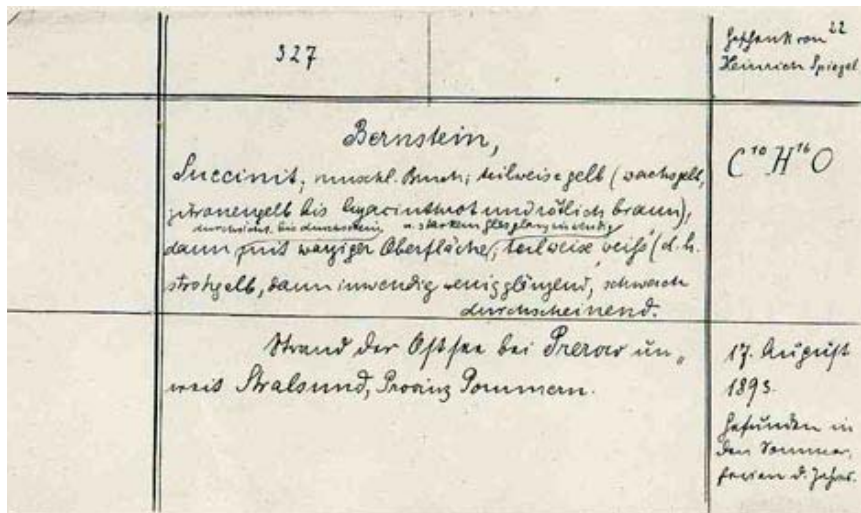 327
Geschenk von 22
Heinrich Spiegel
Bernstein,
Succinit, muschl. Bruch; teilweise gelb (wachsgelb,
zitronengelb bis hyacinthrot und rötlich braun),
durchsicht. bis durchschein. u. starkem Glasglanz inwendig
dann mit warziger Oberfläche, teilweise weiß (d.h.
strohgelb, dann inwendig wenig glänzend, schwach
durchscheinend.
C¹⁰H¹⁶O
Strand der Ostsee bei Prerow un„
weit Stralsund, Provinz Pommern.
17. August
1893.
Gefunden in
den Sommer„
ferien d. Jahres.